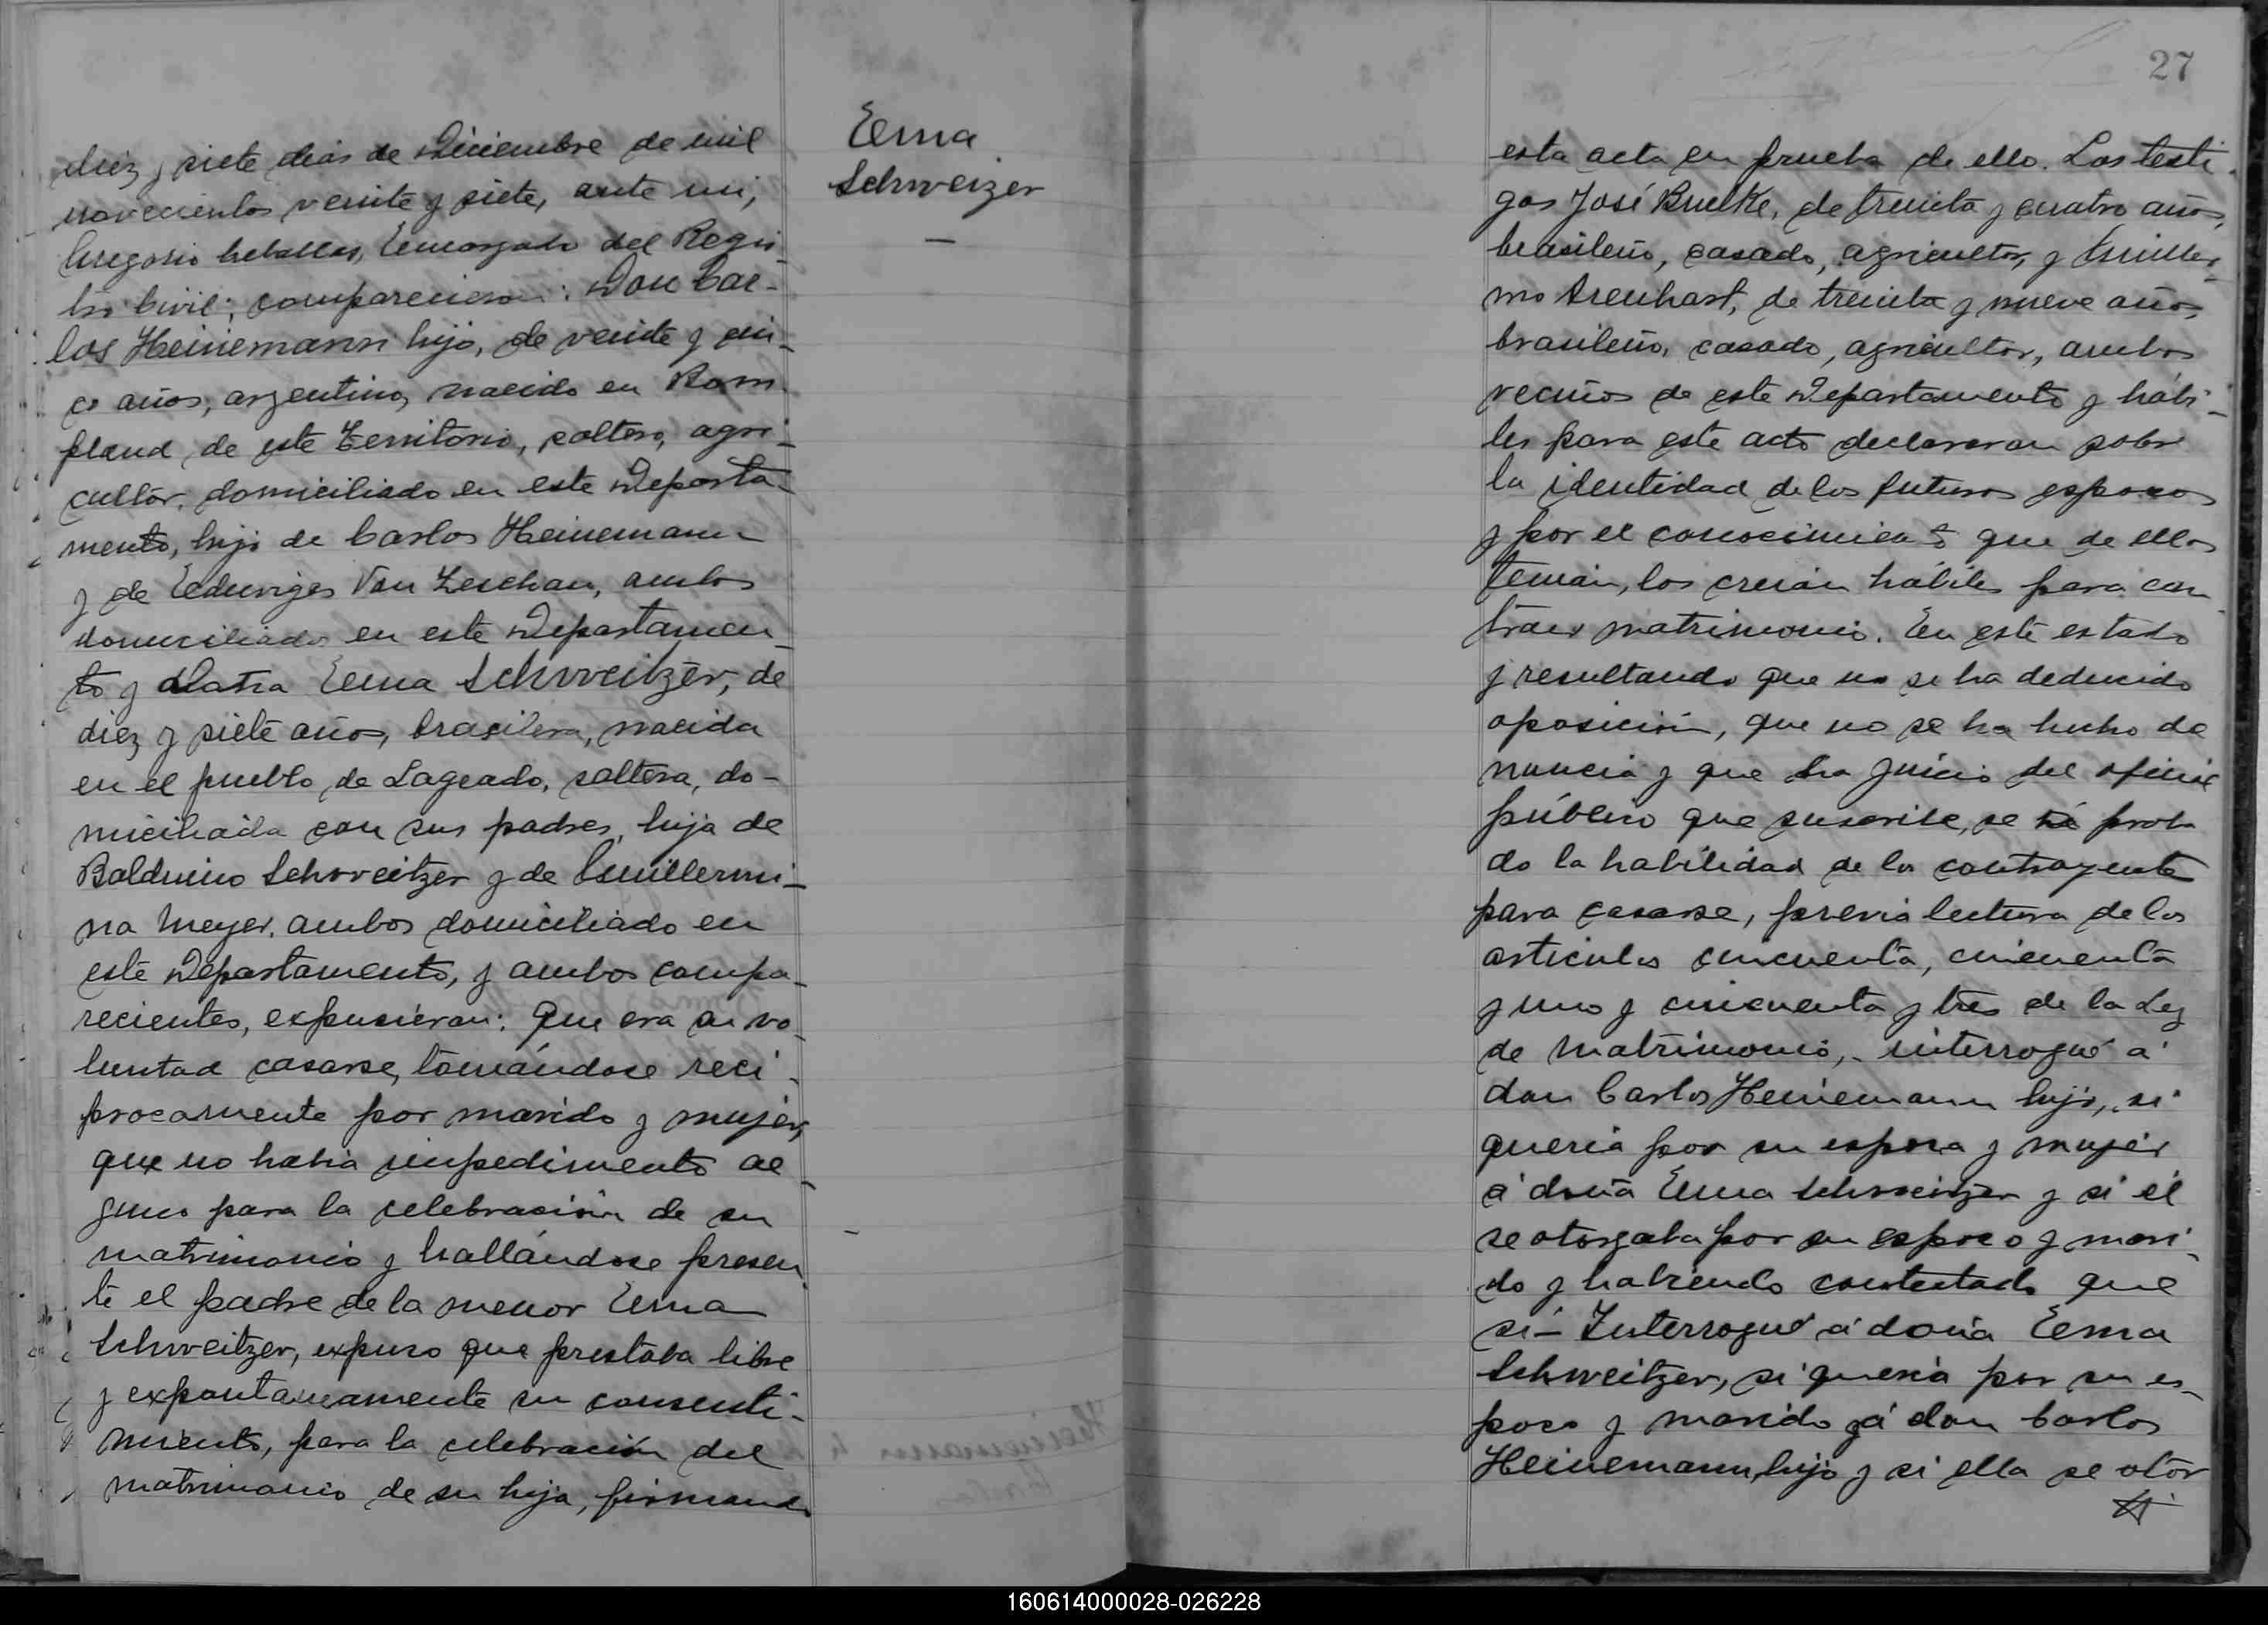 diez y siete dias de Diciembre de mil
novecientos veinte y siete, ante mi,
Gregorio Ceballos, Encargado del Regis-
tro Civil; comparecieron: Don Car-
los Heinemann hijo, de veinte y cin-
co años, argentino, nacido en Bom-
pland, de este Territorio, soltero, agri-
cultor, domiciliado en este Departa-
mento, hijo de Carlos Heinemann
y de Eduviges Van Leschan, ambos
domiciliados en este Departamen-
to y Doña Erna Schweitzer, de
diez y siete años, brasilera, nacida
en el pueblo de Lageado, soltera, do-
miciliada con sus padres, hija de
Balduino Schweitzer y de Guillermi-
na Meyer, ambos domiciliado en
este Departamento, y ambos compa-
recientes, expusieron: Que era su vo-
luntad casarse, tomándose reci-
procamente por marido y mujer,
que no habia impedimento al-
guno para la celebración de su
matrimonio y hallándose presen-
te el padre de la menor Erna
Schweitzer, expuso que prestaba libre
y expontaneamente su consenti-
miento, para la celebración del
matrimonio de su hija, firmando
Erna
Schweizer
—
27
esta acta en prueba de ello. Los testi-
gos José Buelke, de treinta y cuatro años,
brasileño, casado, agricultor, y Guiller-
mo Arenhart, de treinta y nueve años,
brasileño, casado, agricultor, ambos
vecinos de este Departamento y hábi-
les para este acto declararon sobre
la identidad de los futuros esposos
y por el conocimiento que de ellos
tenian, los creian hábiles para con-
traer matrimonio. En este estado
y resultando que no se ha deducido
oposición, que no se ha hecho de
nuncia y que ha juicio del oficial
público que suscribe, se há proba
do la habilidad de los contrayente
para casarse, previa lectura de los
articulos cincuenta, cincuenta
y uno y cincuenta y tres de la Ley
de Matrimonio, interrogué á
don Carlos Heinemann hijo, si
queria por su esposa y mujer
á doña Erna Schweitzer y si él
se otorgaba por su esposo y mari-
do y habiendo contestado que
si— Interrogué á doña Erna
Schweitzer, si queria por su es-
poso y marido á don Carlos
Heinemann, hijo y si ella se otor